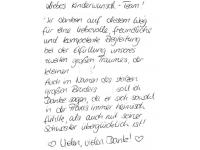 Liebes Kinderwunsch-Team!
Wir danken auf diesem Weg
für eine liebevolle, freundliche
und kompetente Begleitung
bei der Erfüllung unseres
zweiten großen Traumes, der
kleinen !
Auch im Namen des stolzen
großen Bruders soll ich
Danke sagen, da er sich sowohl
in der Praxis immer heimisch
fühlte, als auch mit seiner
Schwester überglücklich ist!
♡ Vielen, vielen Danke! ♡